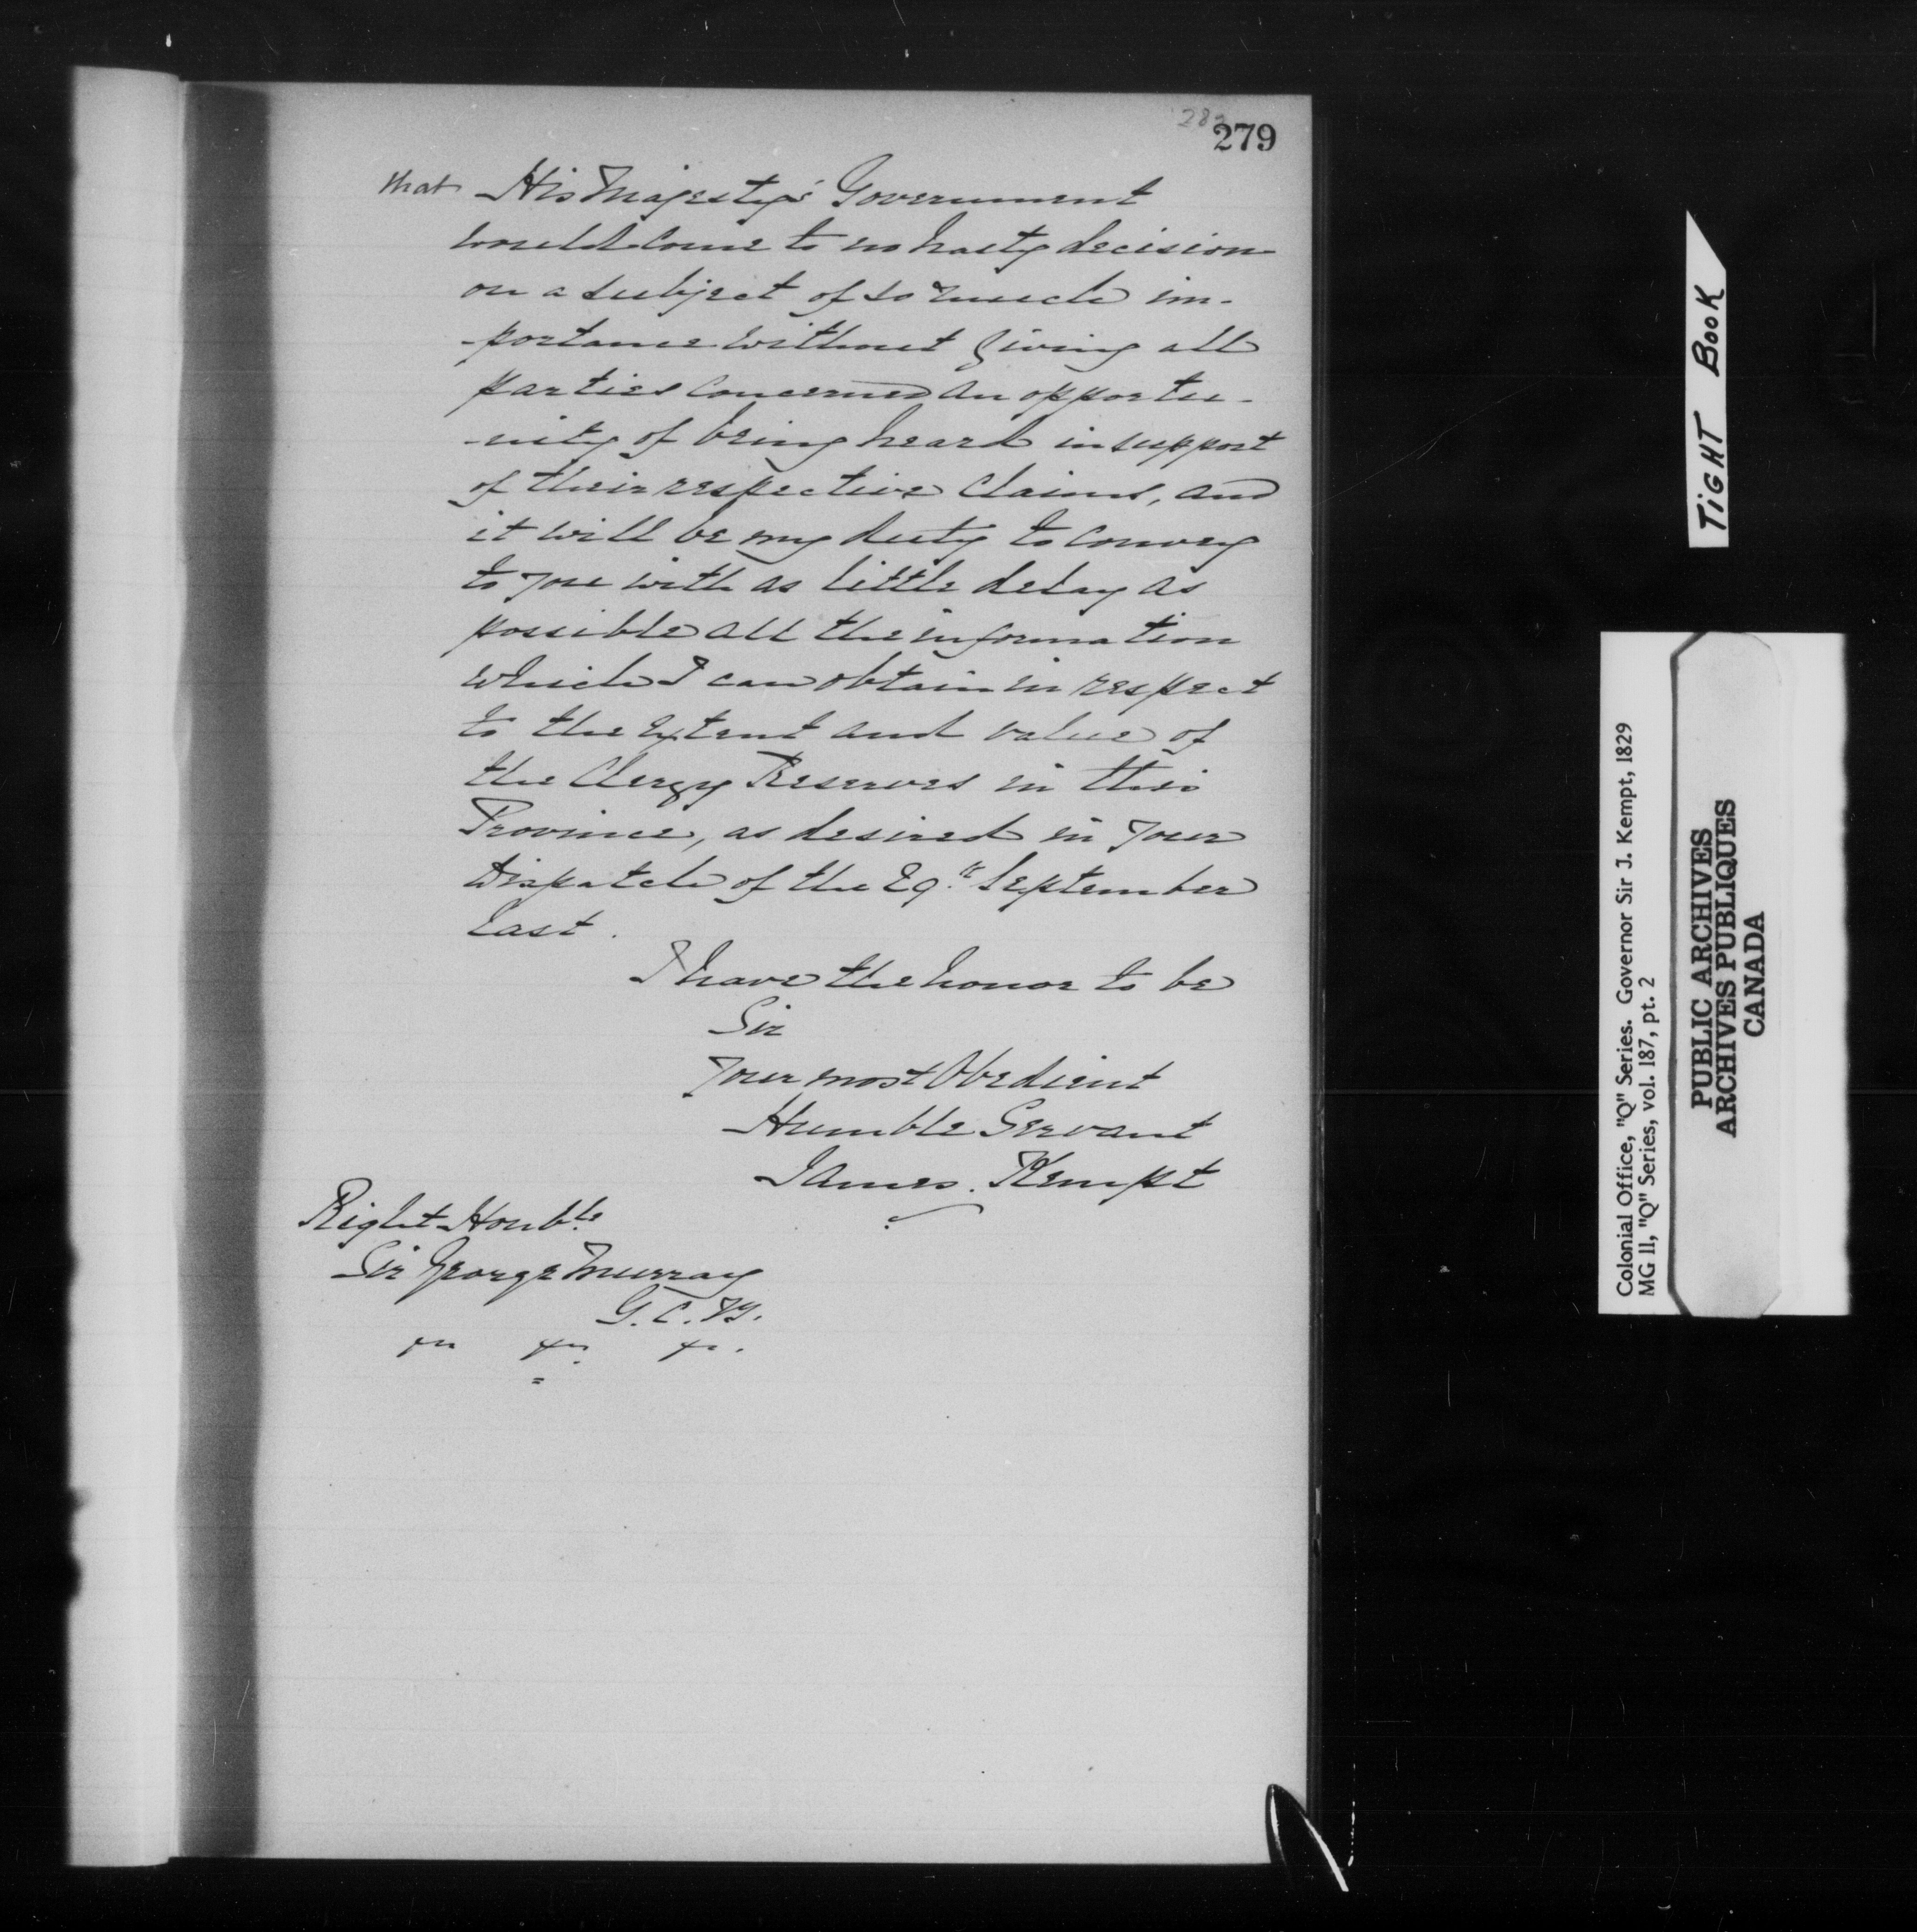 279
that His Majesty's Government
would come to no hasty decision
on a subject of so much im-
-portance without giving all
parties concerned an opportu-
-nity of being heard in support
of their respective claims, and
it will be my duty to convey
to you with as little delay as
possible all the information
which I can obtain in respect
to the extent and value of
the Clergy Reserves in this
Province, as desired in your
Dispatch of the 29th September
last.
I have the honor to be
Sir
Your most Obedient
Humble Servant
James Kempt
Right Honble
Sir George Murray
G.C.B.
TiGHT BOOK
Colonial Office, "Q" Series. Governor Sir J. Kempt, 1829
MG 11, "Q" Series, vol. 187, pt. 2
PUBLIC ARCHIVES
ARCHIVES PUBLIQUES
CANADA